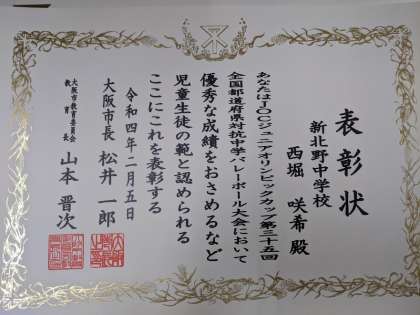 表彰状
新北野中学校
西堀 咲希 殿
あなたはJOCジュニアオリンピックカップ第三十五回
全国都道府県対抗中学バレーボール大会において
優秀な成績をおさめるなど
児童生徒の範と認められる
ここにこれを表彰する
令和四年二月五日
大阪市長 松井 一郎
大阪市教育委員会
教育長 山本 晋次